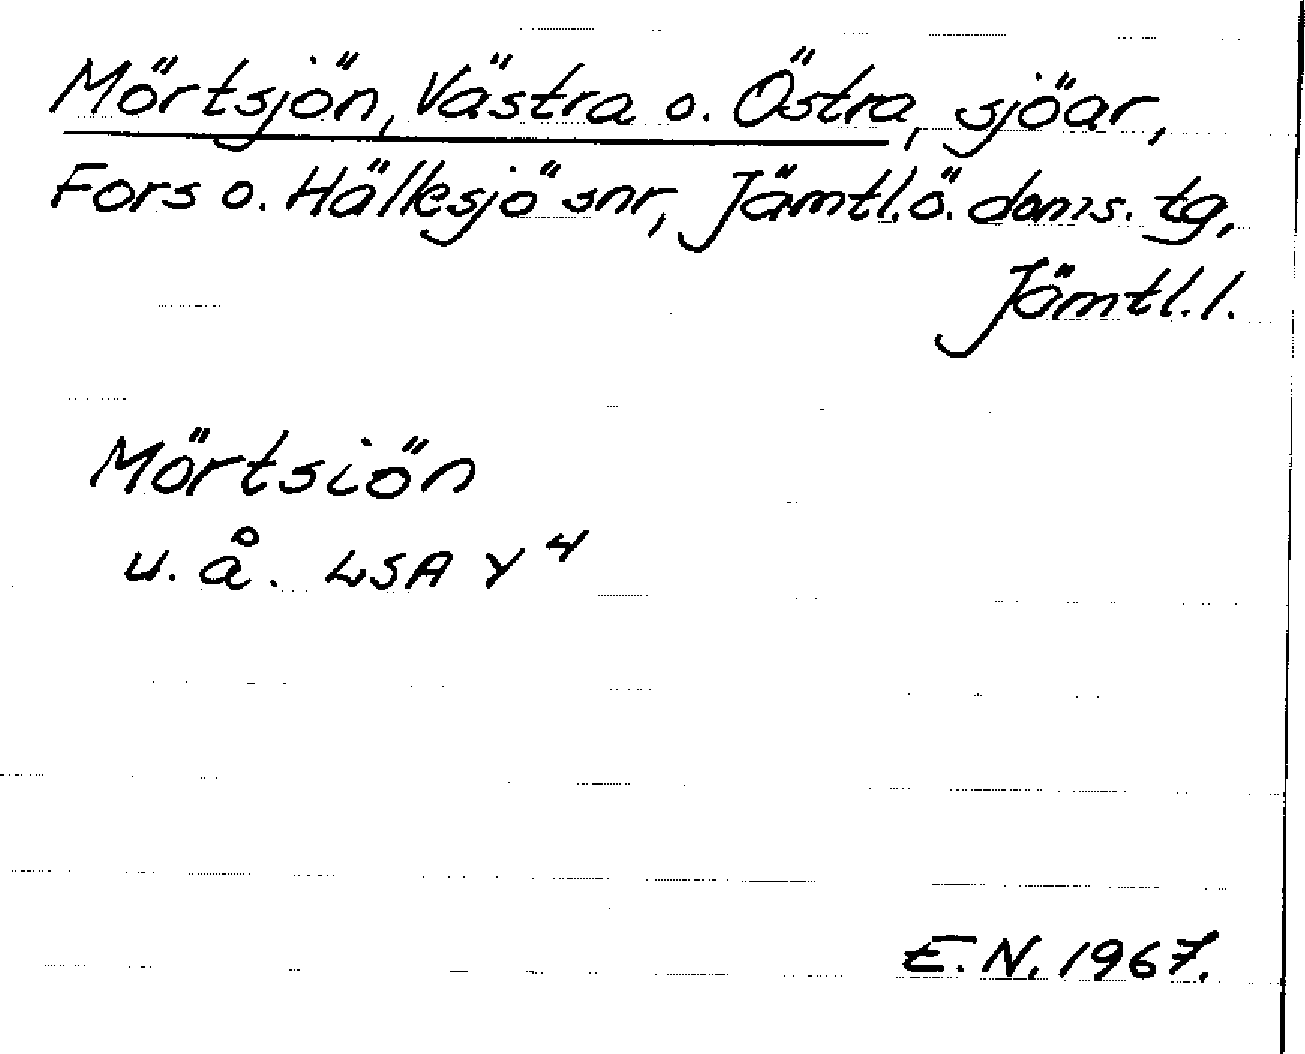 Mörtsjön, Västra o. Östra, sjöar,
Fors o. Hällesjö snr, Jämtl.ö. doms. tg,
Jämtl. l.
Mörtsiön
u. å. LSA Y 4
E. N. 1967.